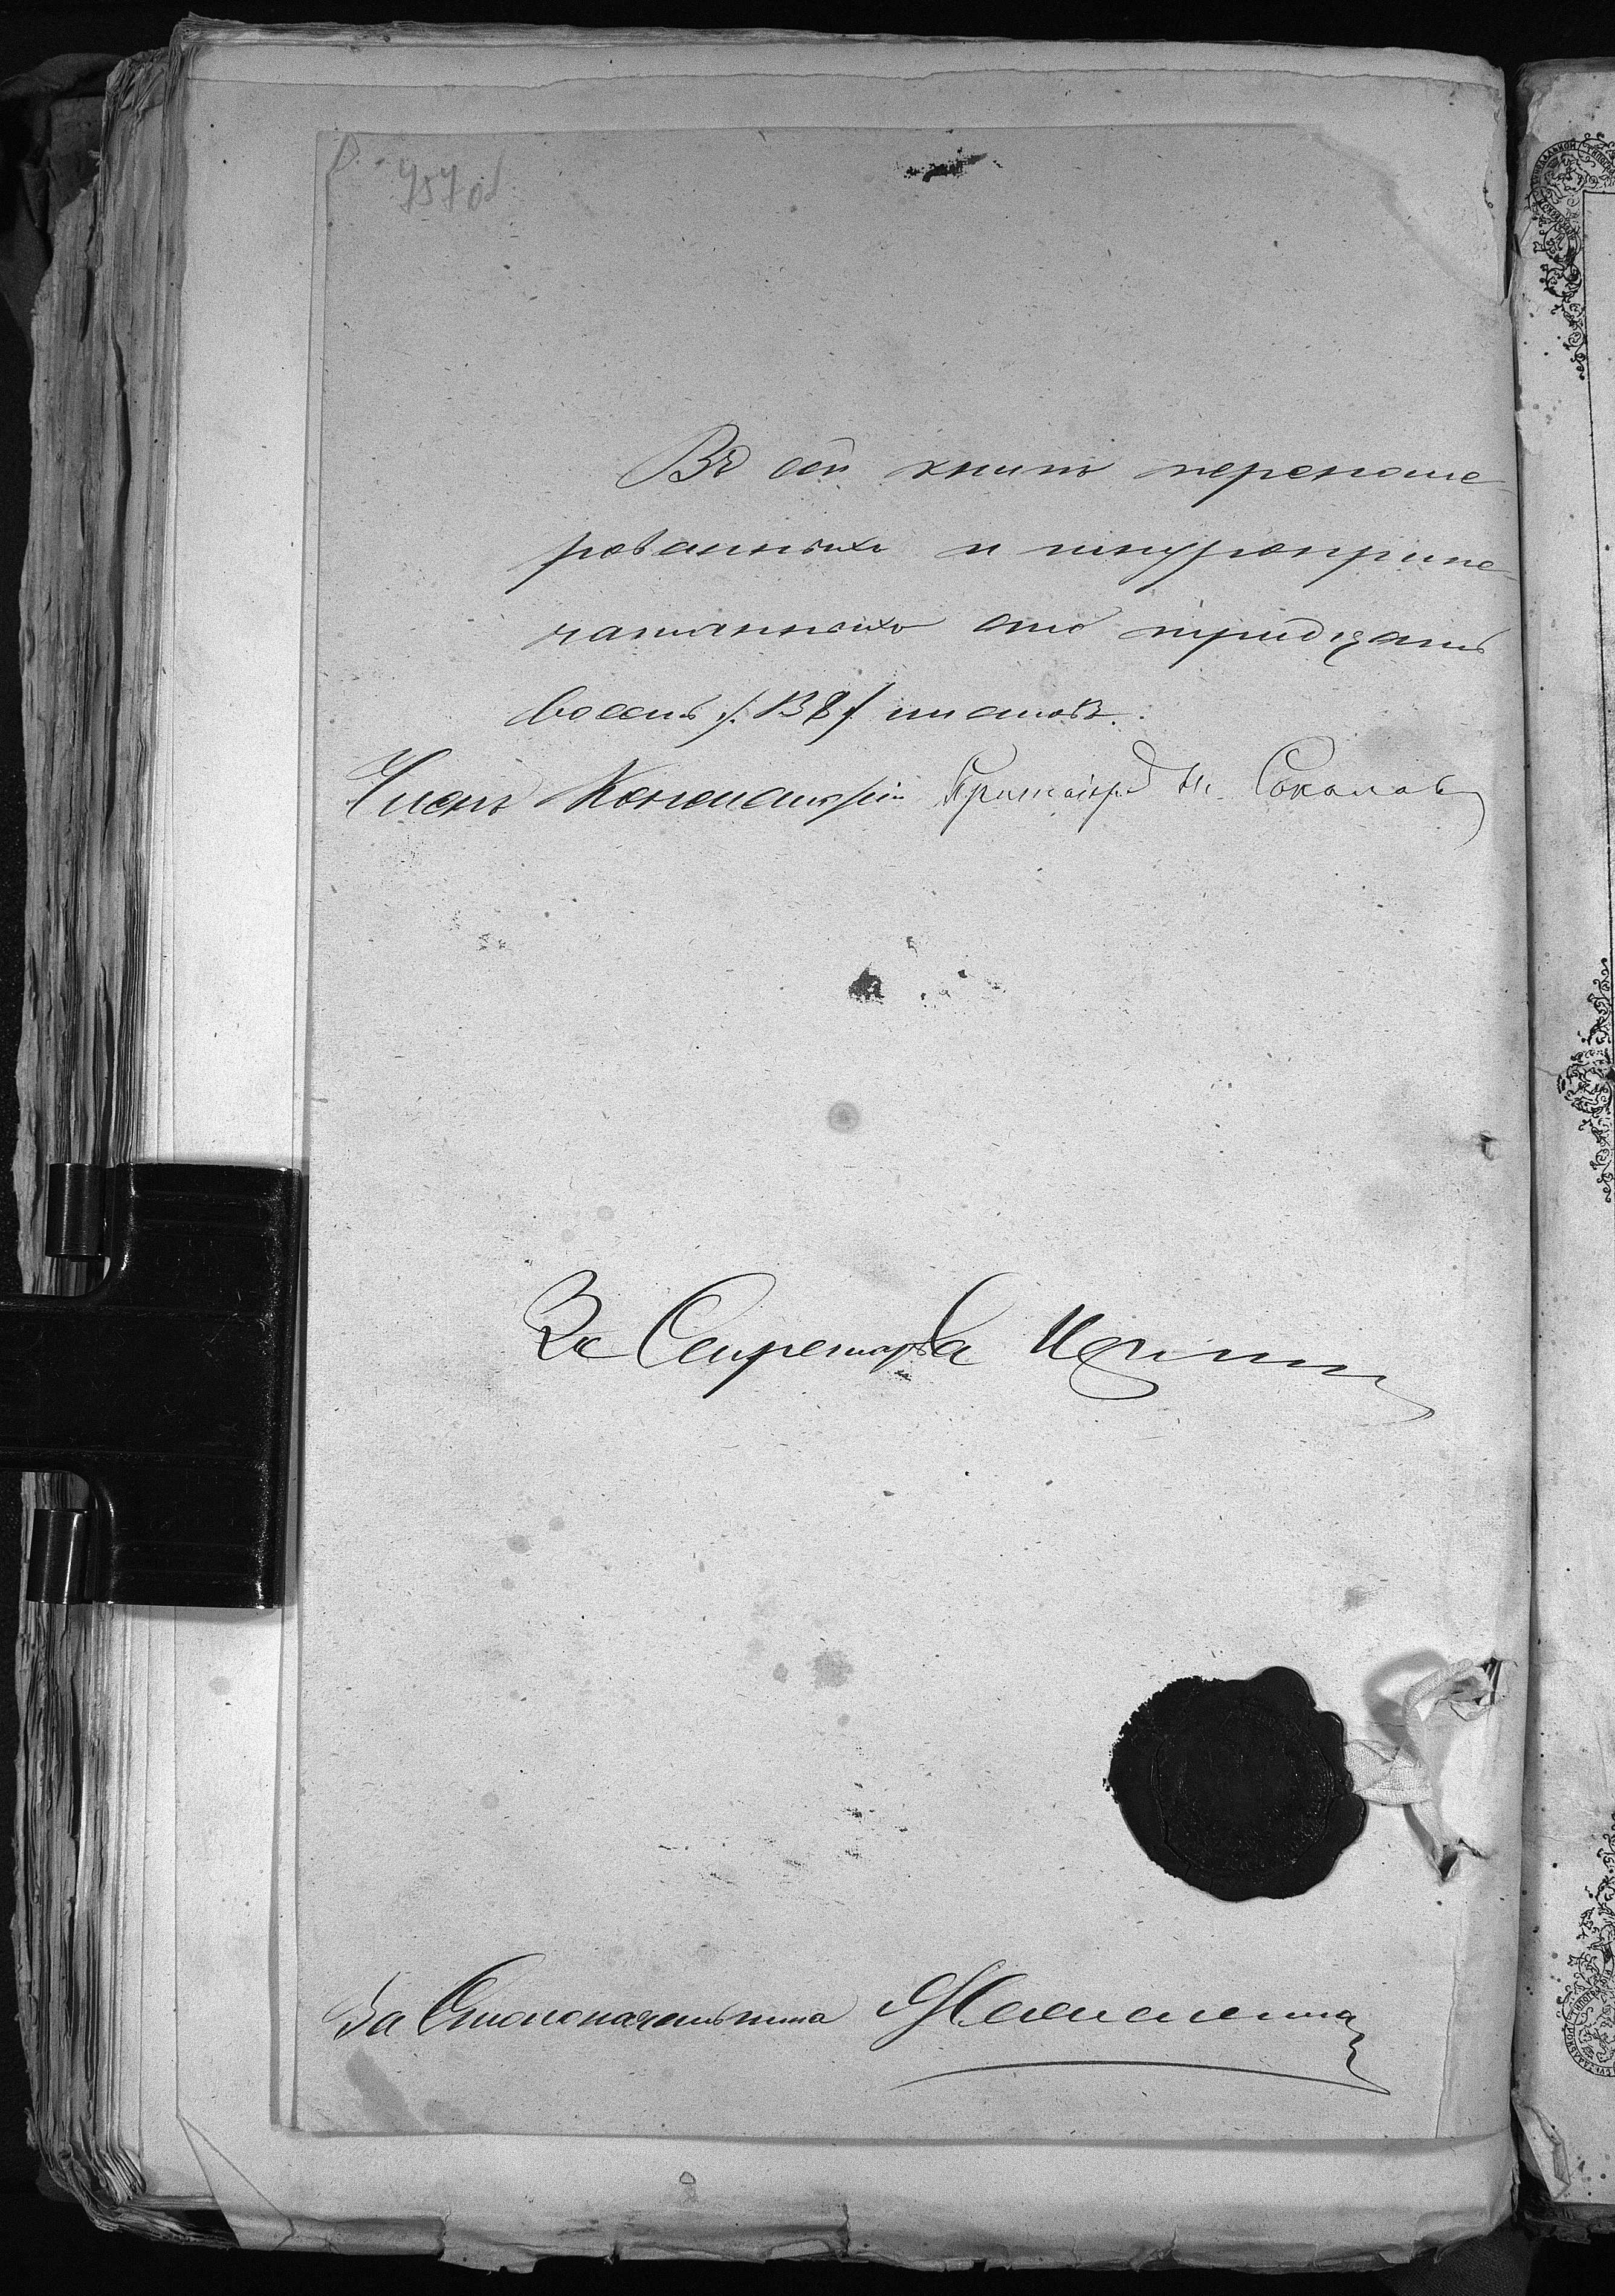 Въ сей книгѣ перенуме-
рованныхъ и шнуроприпе-
чатанныхъ сто тридцать
восемь /138/ листовъ.
Членъ Консисторіи Протоіерей Н. Соколовъ
За Секретаря
За Столоначальника